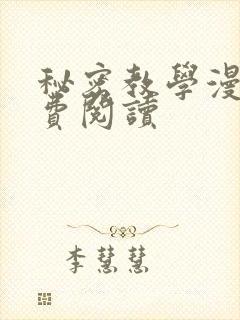 秘密教學漫
費閱讀
李慧慧